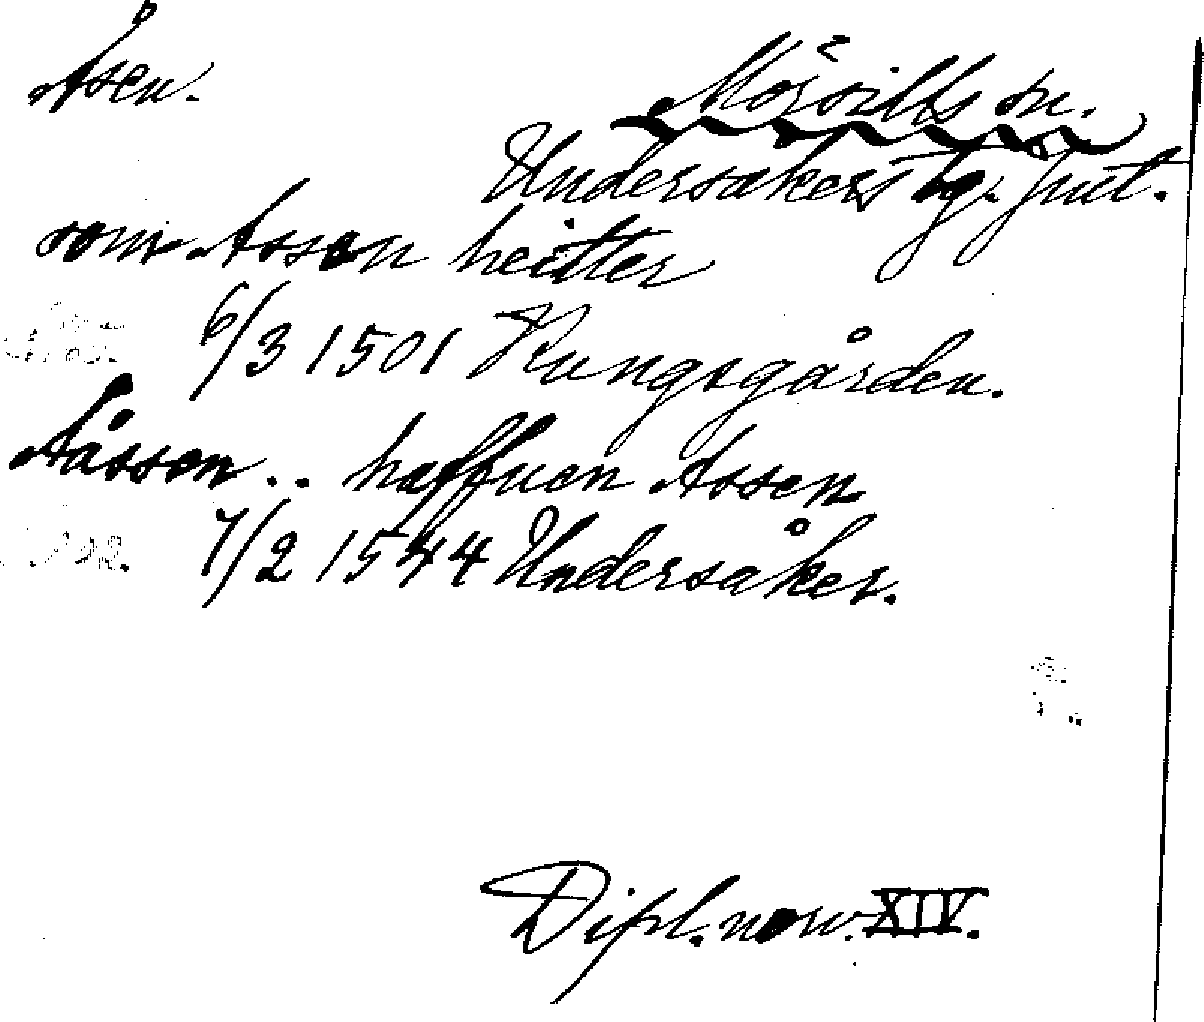 Åsen.
Mörsills sn.
Undersåkers tg. Jmt.
som Assen heitter
6/3 1501 Kungsgården.
Aåssen .. haffuen Assen
7/2 1544 Undersåker.
Dipl. norv. XIV.